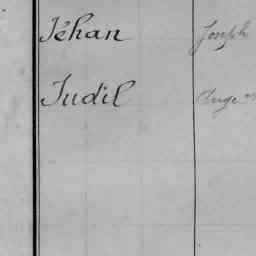 Jéhan Joseph
Judil